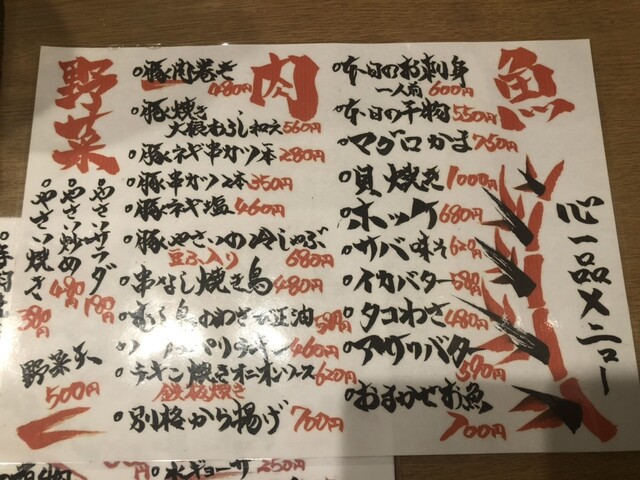 心一品メニュー
魚
本日のお刺身
一人前 600円
本日の干物 550円
マグロかま 750円
貝焼き 1000円
ホッケ 680円
サバ味そ 620円
イカバター 580円
タコわさ 480円
アサリバター 590円
おまかせお魚
700円
肉
豚肉巻き
480円
豚焼き
大根おろし和え 560円
豚ネギ串カツ1本 280円
豚串カツ2本 350円
豚ネギ塩 460円
豚やさいの冷しゃぶ
豆ふ入り 680円
串なし焼き鳥 480円
460円
チキン焼きオニオンソース 620円
鉄板焼き
別格から揚げ 700円
野菜
やさいサラダ
やさい炒め 480円
やさい焼き 380円
野菜天
500円
水ギョーザ 250円